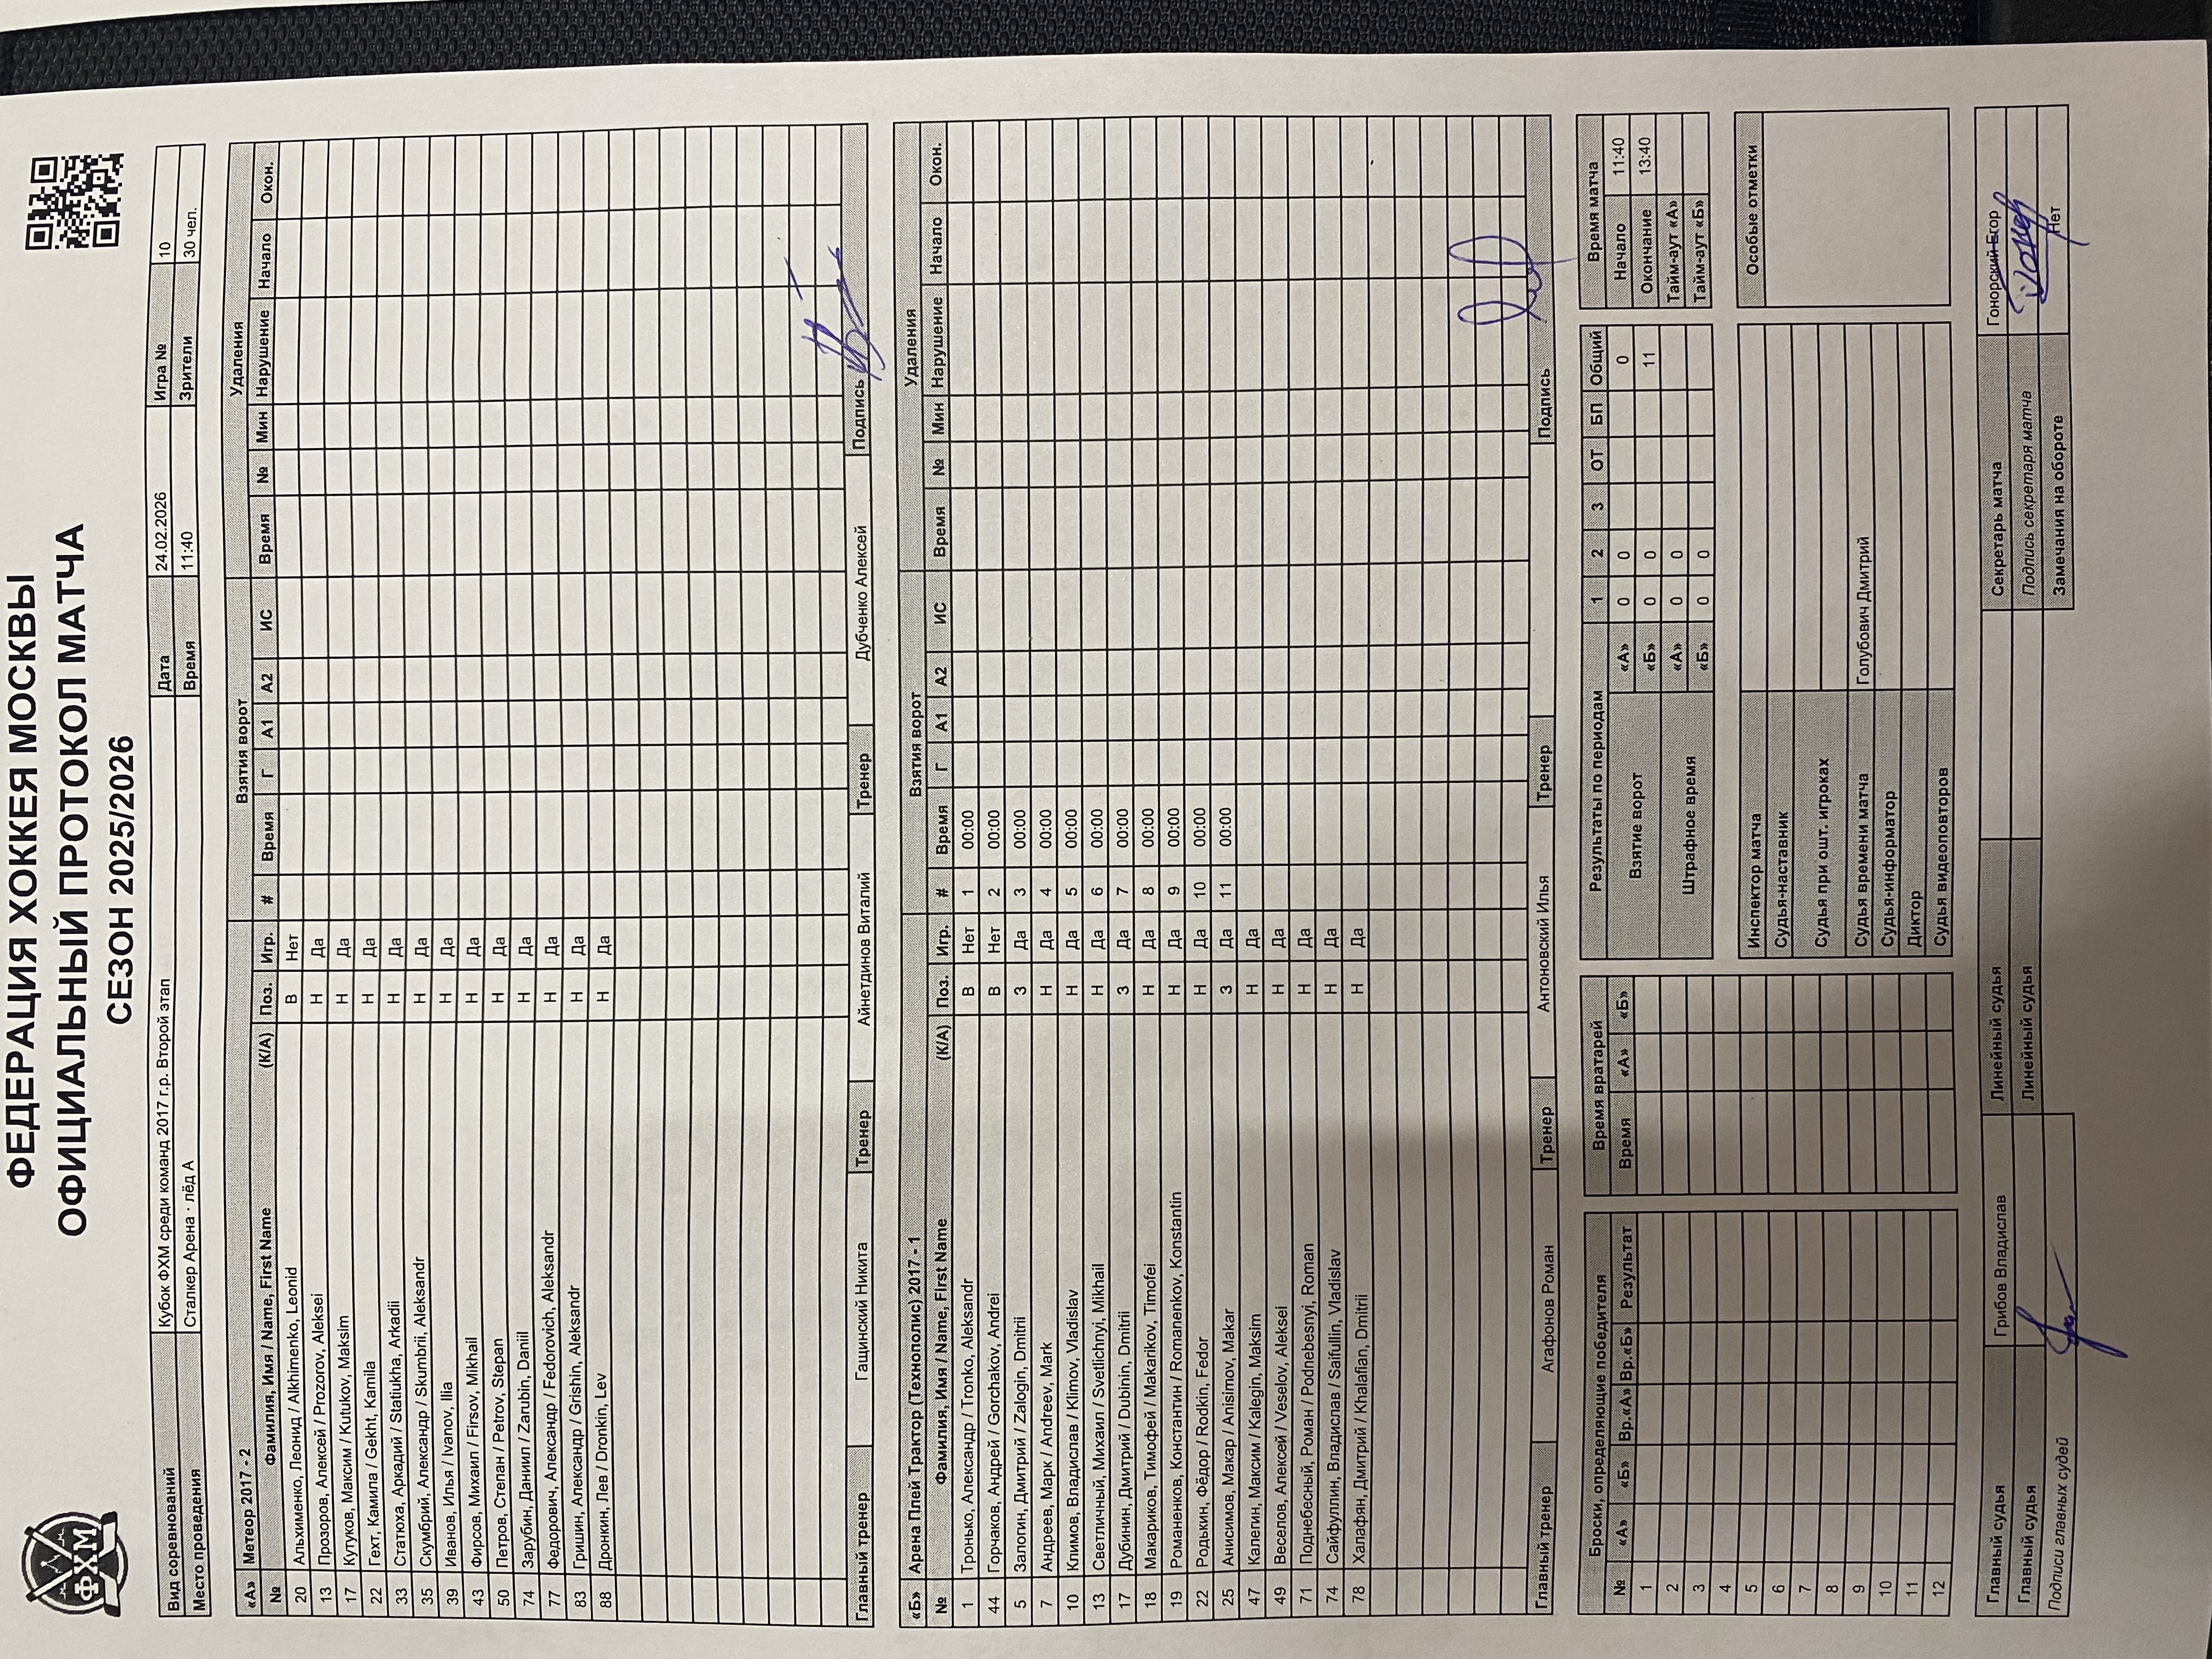 ФХМ
ФЕДЕРАЦИЯ ХОККЕЯ МОСКВЫ
ОФИЦИАЛЬНЫЙ ПРОТОКОЛ МАТЧА
СЕЗОН 2025/2026
Вид соревнований Кубок ФХМ среди команд 2017 г.р. Второй этап Дата 24.02.2026 Игра № 10
Место проведения Сталкер Арена · лёд А Время 11:40 Зрители 30 чел.
«А» Метеор 2017 - 2 Взятия ворот Удаления
№ Фамилия, Имя / Name, First Name (К/А) Поз. Игр. # Время Г А1 А2 ИС Время № Мин Нарушение Начало Окон.
20 Альхименко, Леонид / Alkhimenko, Leonid В Нет
13 Прозоров, Алексей / Prozorov, Aleksei Н Да
17 Кутуков, Максим / Kutukov, Maksim Н Да
22 Гехт, Камила / Gekht, Kamila Н Да
33 Статюха, Аркадий / Statiukha, Arkadii Н Да
35 Скумбрий, Александр / Skumbrii, Aleksandr Н Да
39 Иванов, Илья / Ivanov, Ilia Н Да
43 Фирсов, Михаил / Firsov, Mikhail Н Да
50 Петров, Степан / Petrov, Stepan Н Да
74 Зарубин, Даниил / Zarubin, Daniil Н Да
77 Федорович, Александр / Fedorovich, Aleksandr Н Да
83 Гришин, Александр / Grishin, Aleksandr Н Да
88 Дронкин, Лев / Dronkin, Lev Н Да
Главный тренер Гащинский Никита Тренер Айнетдинов Виталий Тренер Дубченко Алексей Подпись
«Б» Арена Плей Трактор (Технополис) 2017 - 1 Взятия ворот Удаления
№ Фамилия, Имя / Name, First Name (К/А) Поз. Игр. # Время Г А1 А2 ИС Время № Мин Нарушение Начало Окон.
1 Тронько, Александр / Tronko, Aleksandr В Нет 1 00:00
44 Горчаков, Андрей / Gorchakov, Andrei В Нет 2 00:00
5 Залогин, Дмитрий / Zalogin, Dmitrii З Да 3 00:00
7 Андреев, Марк / Andreev, Mark Н Да 4 00:00
10 Климов, Владислав / Klimov, Vladislav Н Да 5 00:00
13 Светличный, Михаил / Svetlichnyi, Mikhail Н Да 6 00:00
17 Дубинин, Дмитрий / Dubinin, Dmitrii З Да 7 00:00
18 Макариков, Тимофей / Makarikov, Timofei Н Да 8 00:00
19 Романенков, Константин / Romanenkov, Konstantin Н Да 9 00:00
22 Родькин, Фёдор / Rodkin, Fedor Н Да 10 00:00
25 Анисимов, Макар / Anisimov, Makar З Да 11 00:00
47 Калегин, Максим / Kalegin, Maksim Н Да
49 Веселов, Алексей / Veselov, Aleksei Н Да
71 Поднебесный, Роман / Podnebesnyi, Roman Н Да
74 Сайфуллин, Владислав / Saifullin, Vladislav Н Да
78 Халафян, Дмитрий / Khalafian, Dmitrii Н Да
Главный тренер Агафонов Роман Тренер Антоновский Илья Тренер Подпись
Броски, определяющие победителя Время вратарей Результаты по периодам 1 2 3 ОТ БП Общий Время матча
№ «А» «Б» Вр.«А» Вр.«Б» Результат Время «А» «Б» Взятие ворот «А» 0 0 0 Начало 11:40
1 «Б» 0 0 11 Окончание 13:40
2 Штрафное время «А» 0 0 Тайм-аут «А»
3 «Б» 0 0 Тайм-аут «Б»
4
5 Инспектор матча Особые отметки
6 Судья-наставник
7 Судья при ошт. игроках
8
9 Судья времени матча Голубович Дмитрий
10 Судья-информатор
11 Диктор
12 Судья видеоповторов
Главный судья Грибов Владислав Линейный судья Секретарь матча Гонорский Егор
Главный судья Линейный судья Подпись секретаря матча
Подписи главных судей Замечания на обороте Нет